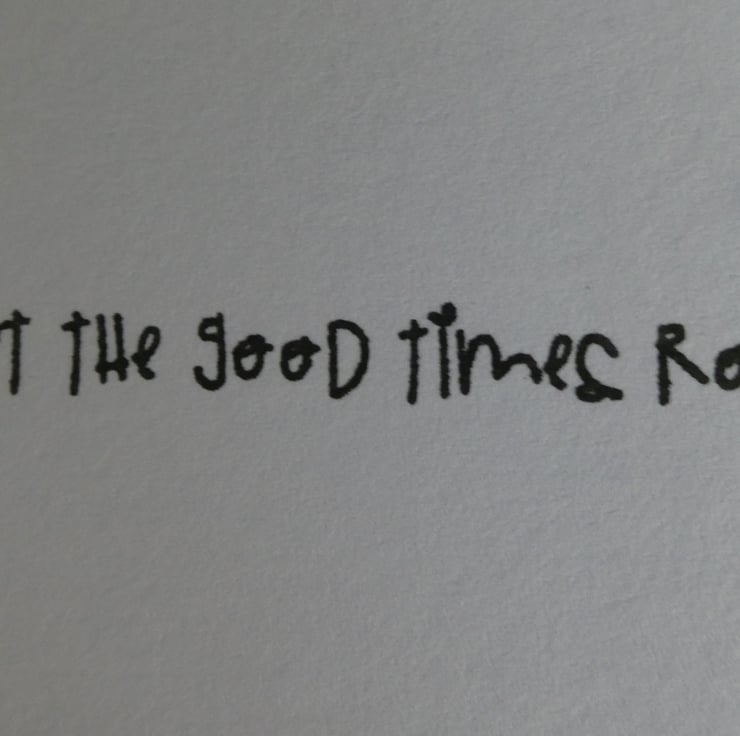 THe gooD Times